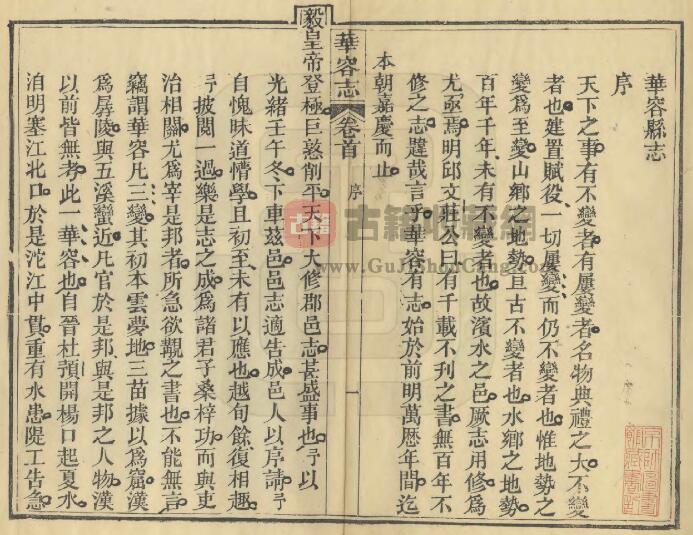 華容縣志
序
天下之事有不變者有屢變者名物典禮之大不變
者也建置賦役一切屢變而仍不變者也惟地勢之
變爲至變山鄉之地勢亘古不變者也水鄉之地勢
百年千年未有不變者也故濱水之邑厥志用修爲
尤亟焉明邱文莊公曰有千載不刊之書無百年不
修之志韙哉言乎華容有志始於前明萬厯年間迄
本朝嘉慶而止
華容志 卷首 序 一
毅皇帝登極巨憝削平天下大修郡邑志甚盛事也予以
光緒壬午冬下車茲邑邑志適告成邑人以序請予
自愧昧道懵學且初至未有以應也越旬餘復相趣
予披閱一過樂是志之成爲諸君子桑梓功而與吏
治相關尤爲宰是邦者所急欲覩之書也不能無言
竊謂華容凡三變其初本雲夢地三苗據以爲窟漢
爲孱陵與五溪蠻近凡官於是邦與是邦之人物漢
以前皆無考此一華容也自晉杜預開楊口起夏水
洎明塞江北口於是沱江中貫重有水患隄工告急
古籍 古籍收藏網
www.GuJiShouCang.com